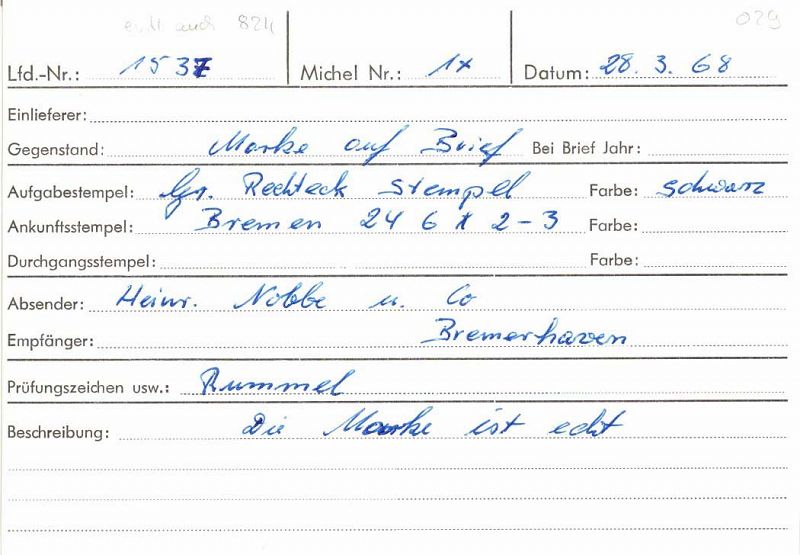 echt auch 824 029
Lfd.-Nr.: 1537 Michel Nr.: 1x Datum: 28. 3. 68
Einlieferer:
Gegenstand: Marke auf Brief Bei Brief Jahr:
Aufgabestempel: Gr. Rechteck Stempel Farbe: schwarz
Ankunftsstempel: Bremen 24 6 * 2-3 Farbe:
Durchgangsstempel: Farbe:
Absender: Heinr. Nobbe u. Co
Empfänger: Bremerhaven
Prüfungszeichen usw.: Rummel
Beschreibung: Die Marke ist echt